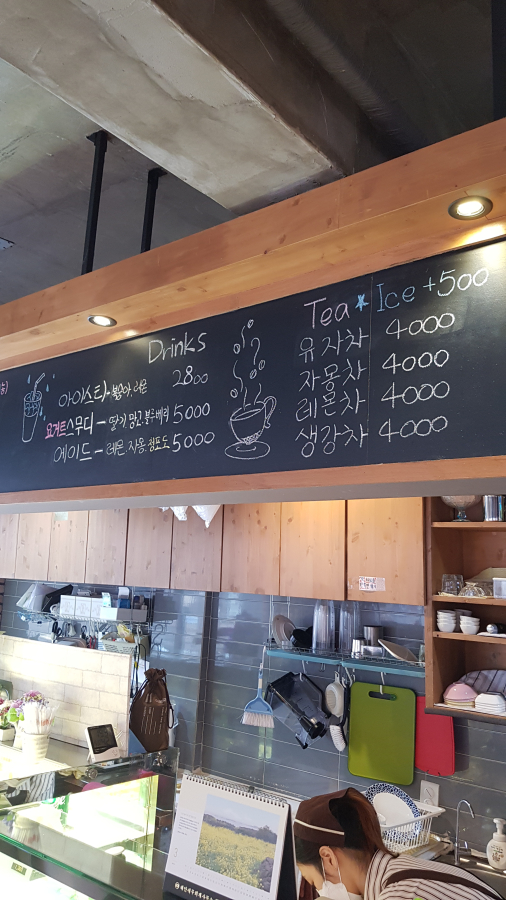 Drinks
아이스티-복숭아,레몬 2800
요거트스무디-딸기,망고,블루베리 5000
에이드-레몬,자몽,청포도 5000
Tea Ice +500
유자차 4000
자몽차 4000
레몬차 4000
생강차 4000